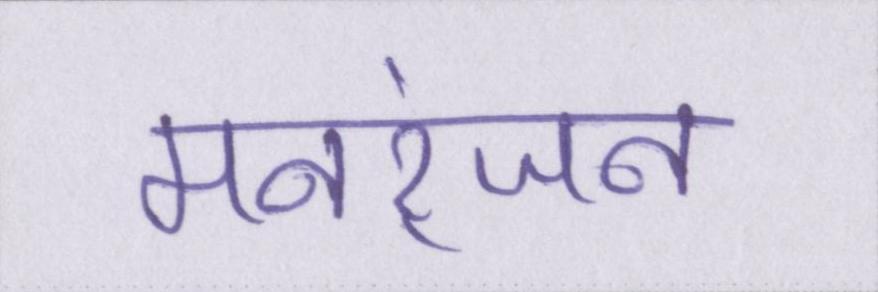 मनरंजन